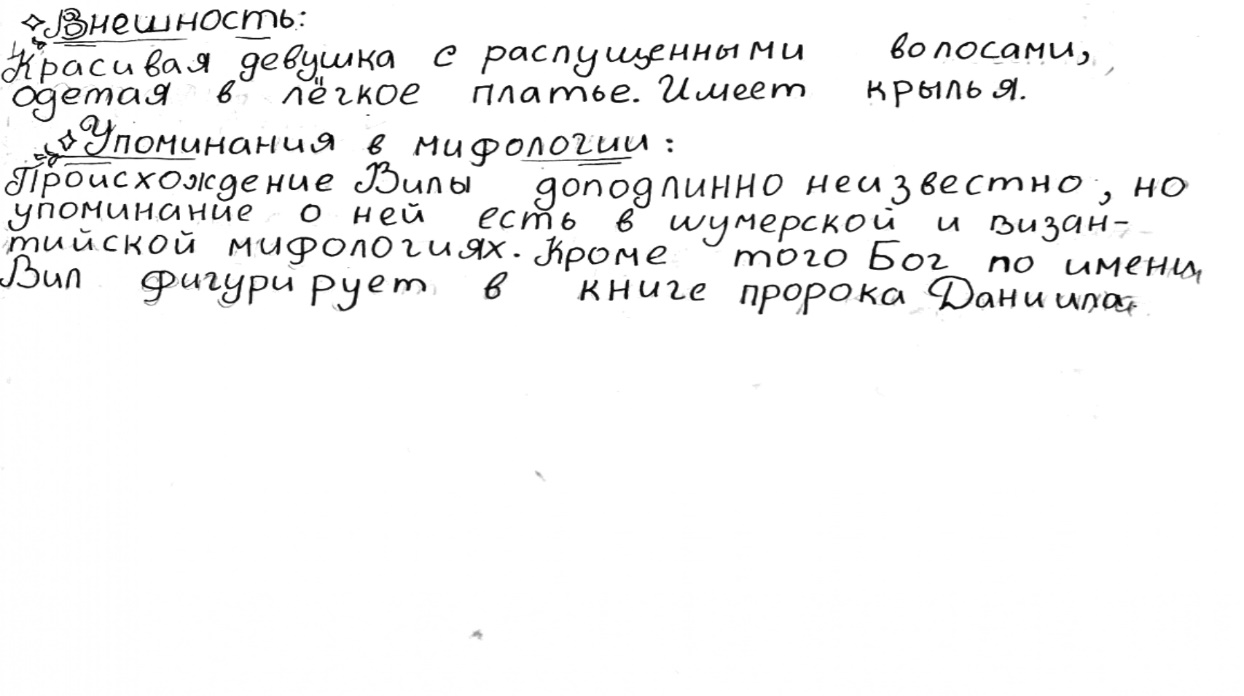 Внешность:
Красивая девушка с распущенными волосами,
одетая в лёгкое платье. Имеет крылья.
Упоминания в мифологии:
Происхождение Вилы доподлинно неизвестно, но
упоминание о ней есть в шумерской и визан-
тийской мифологиях. Кроме того Бог по имени
Вил фигурирует в книге пророка Даниила